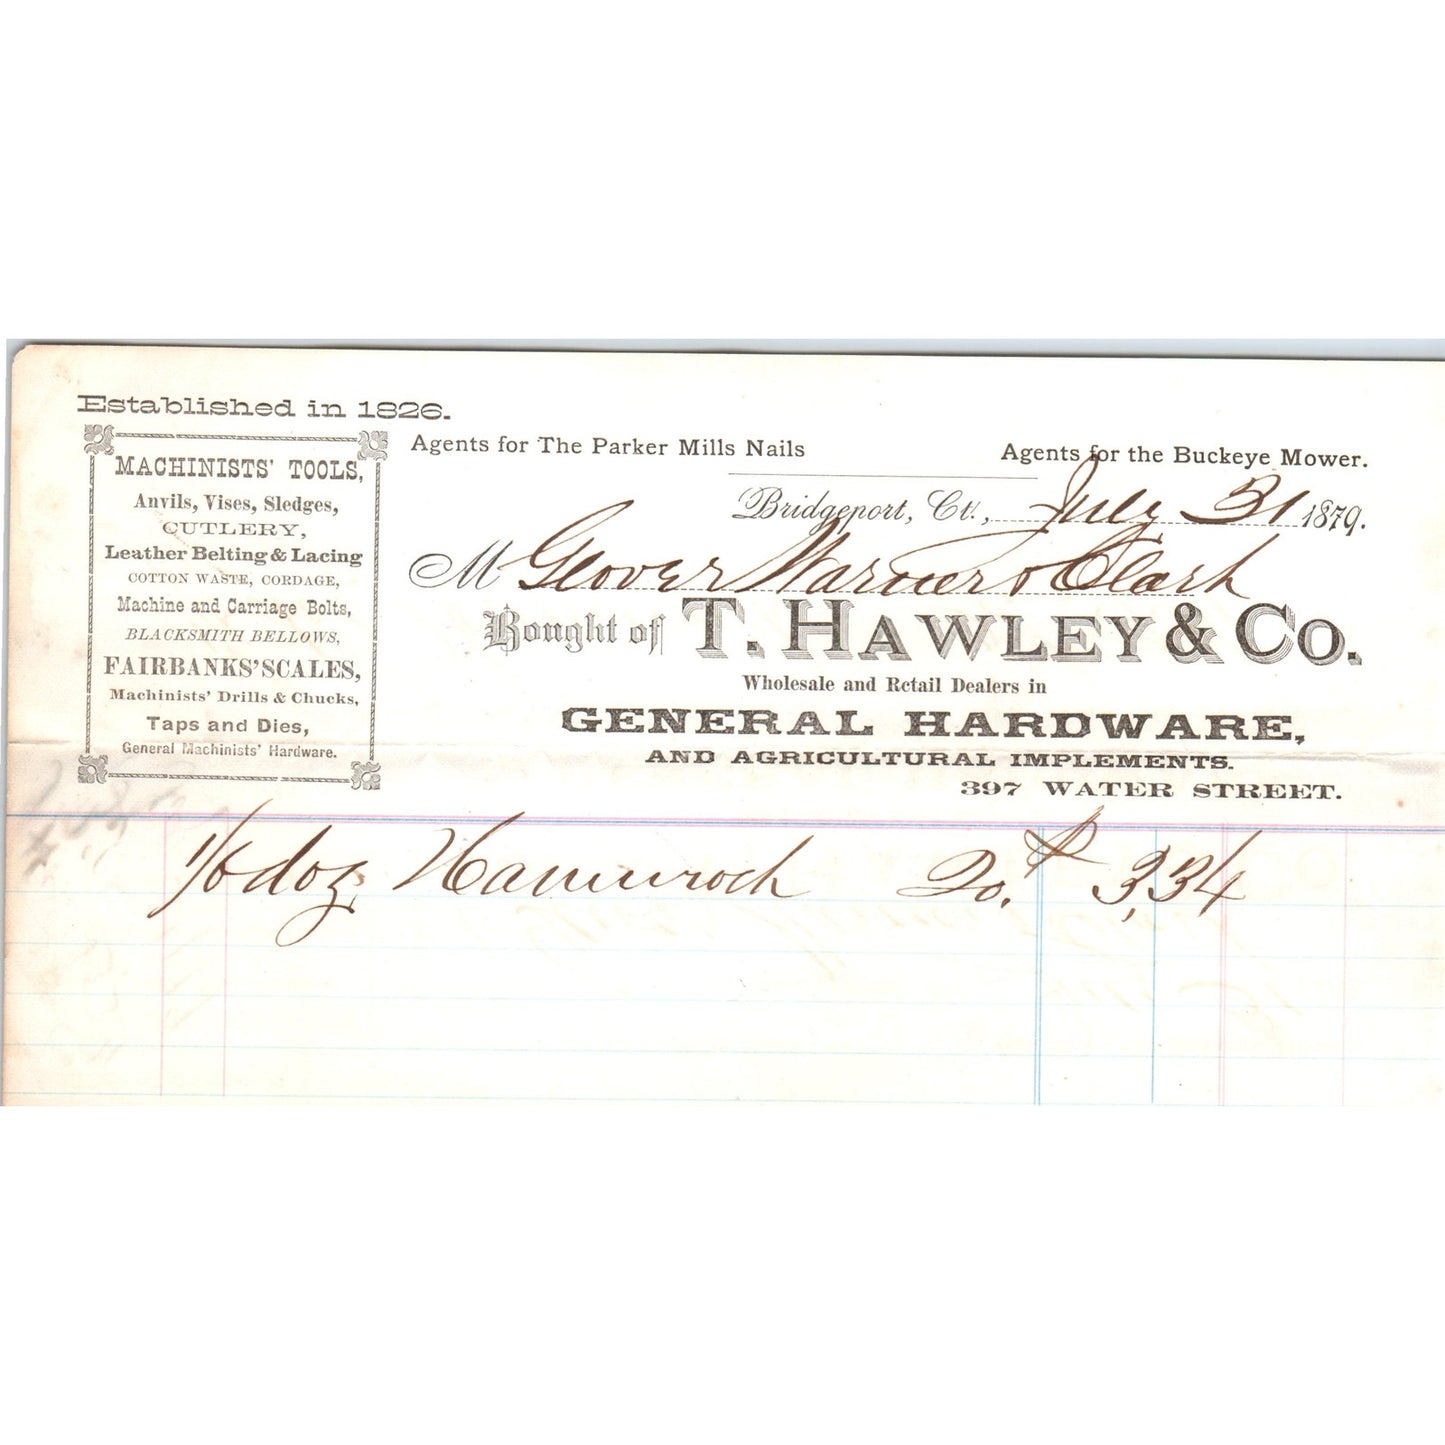 Established in 1826.
MACHINISTS' TOOLS,
Anvils, Vises, Sledges,
CUTLERY,
Leather Belting & Lacing
COTTON WASTE, CORDAGE,
Machine and Carriage Bolts,
BLACKSMITH BELLOWS,
FAIRBANKS' SCALES,
Machinists' Drills & Chucks,
Taps and Dies,
General Machinists' Hardware.
Agents for The Parker Mills Nails
Agents for the Buckeye Mower.
Bridgeport, Ct., July 31 1879.
M Glover Warner & Clark
Bought of T. HAWLEY & CO.
Wholesale and Retail Dealers in
GENERAL HARDWARE,
AND AGRICULTURAL IMPLEMENTS.
397 WATER STREET.
1/6 doz Hammock 20. $ 3.34